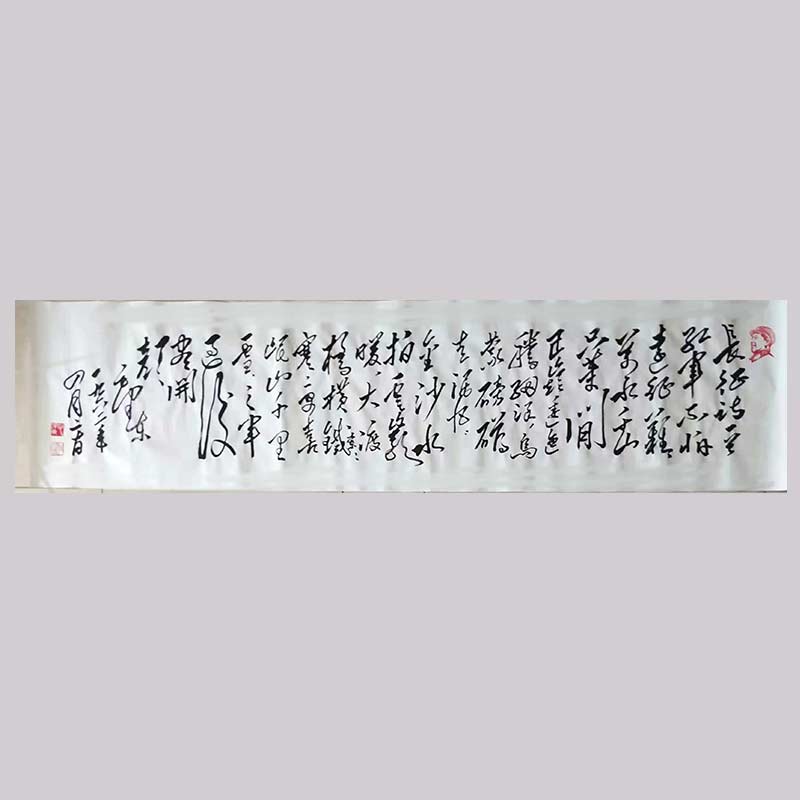 長征詩一首
紅軍不怕
遠征難
萬水千山
只等閒
五嶺逶迤
騰細浪烏
蒙磅礴
走泥丸
金沙水
拍雲崖
暖大渡
橋橫鐵索
寒更喜
岷山千里
雪三軍
過後
盡開
顏
毛澤東
一九六二年
四月二十日